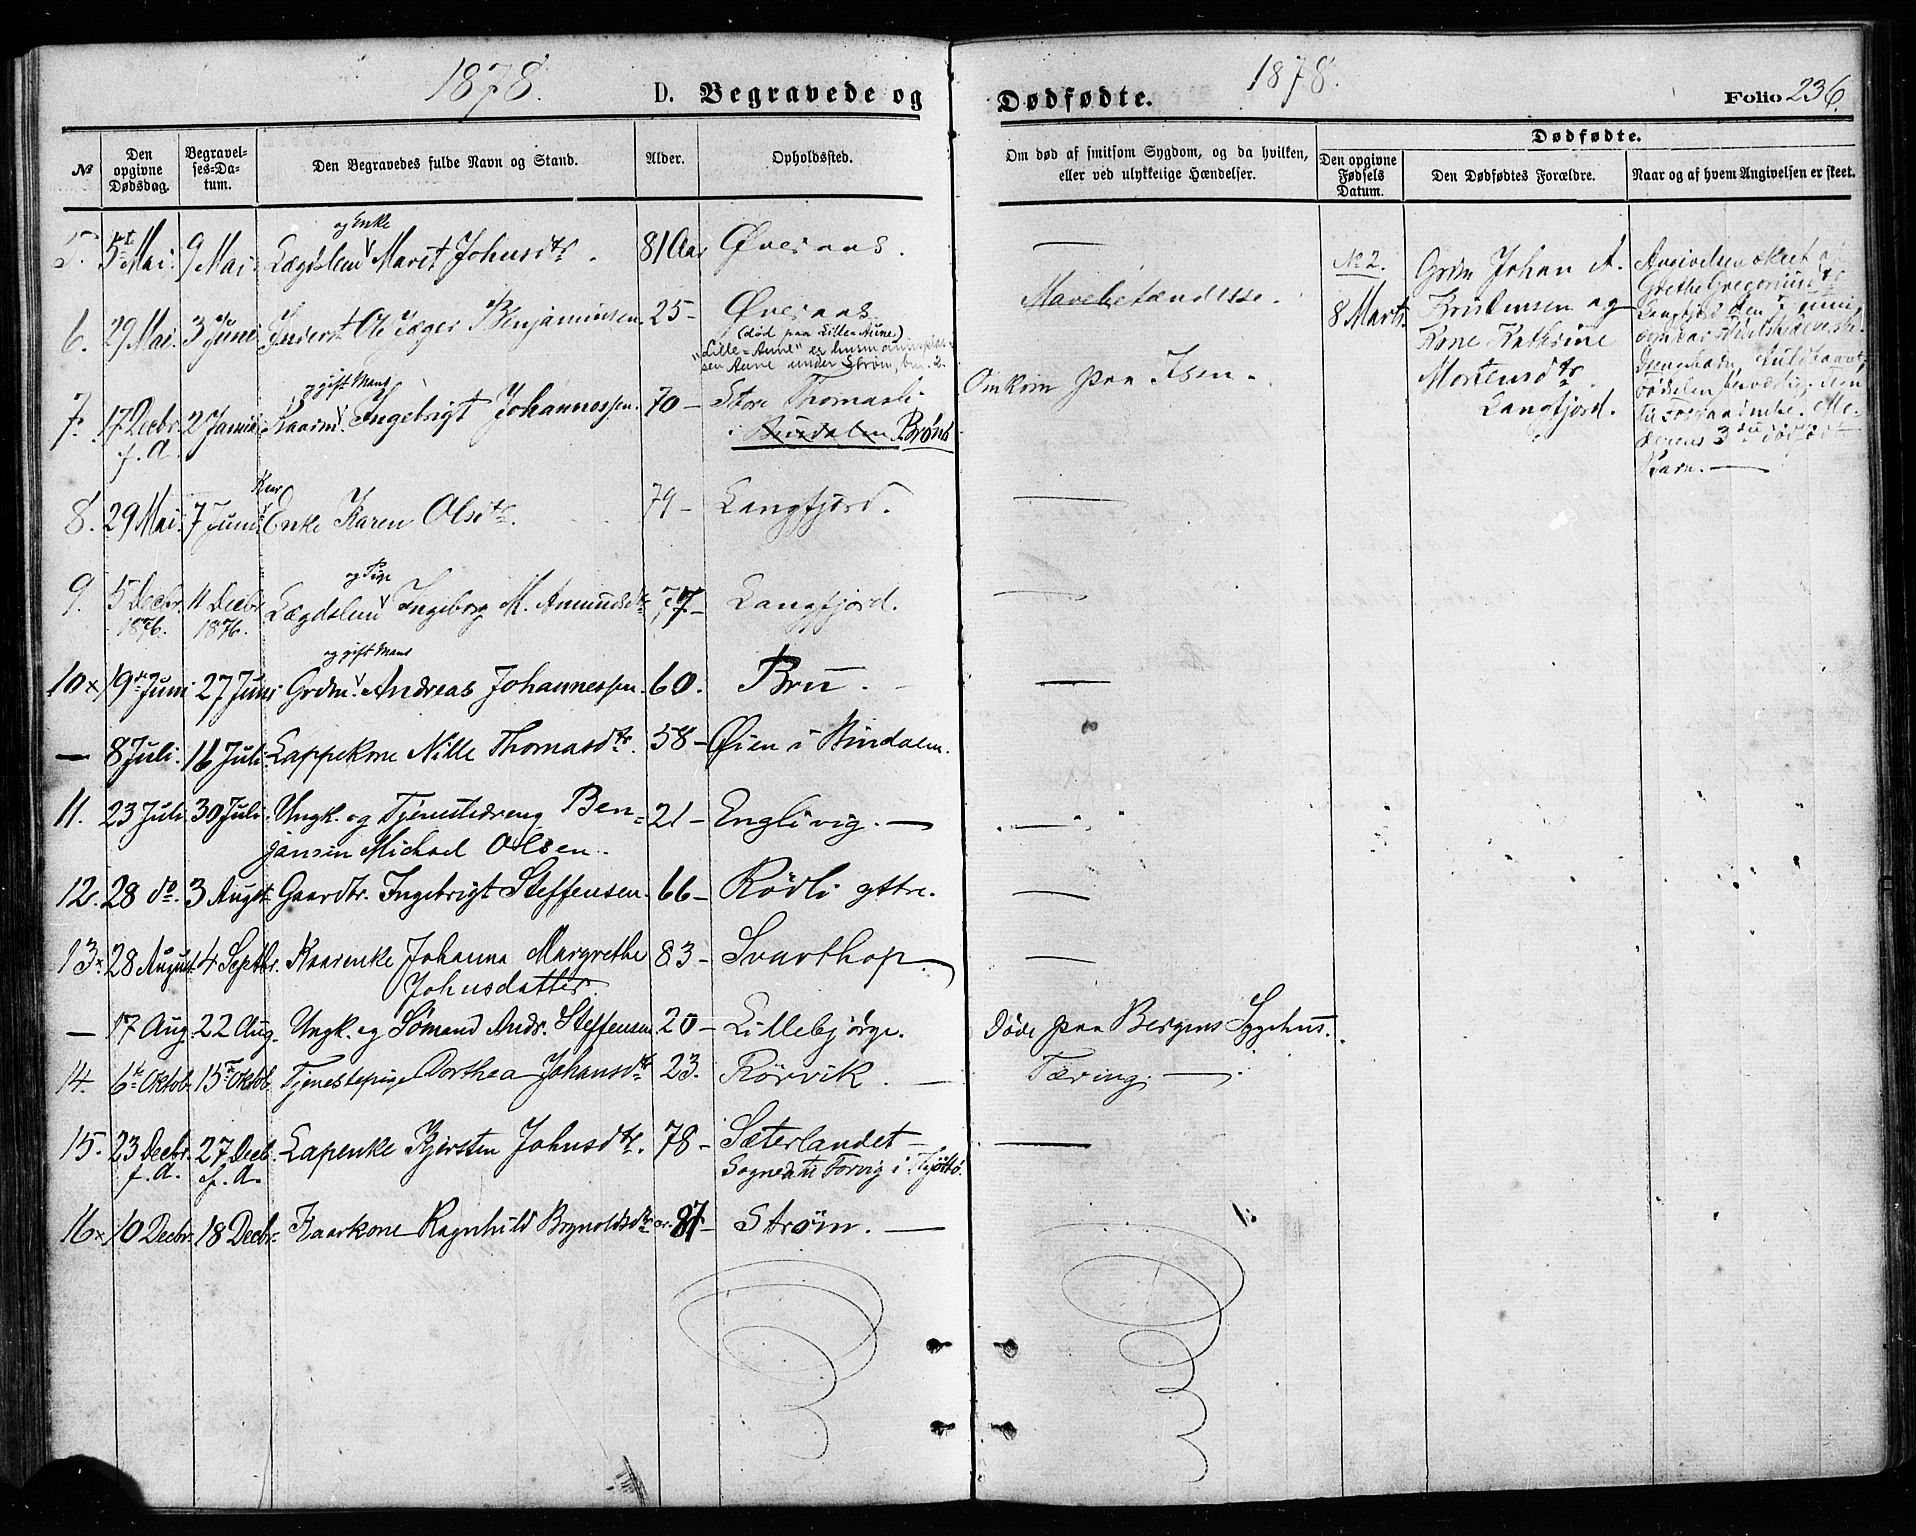 1878.
D. Begravede og
№
Den opgivne Dødsdag.
Begravelses-Datum.
Den Begravedes fulde Navn og Stand.
Alder.
Opholdssted.
5. 5te Mai. 9 Mai. Lægdslem og Enke Marit Johnsdtr. 81 Aar Øveraas.
6. 29 Mai. 3 Juni Inderst Ole Jæger Benjaminsen 25 - Øveraas
(død paa Lille-Aune)
"Lille-Aune" er husmandsplas
7. 17 Decbr. f. A. 2 Januar Kaarm. og gift Mand Ingebrigt Johannessen. 70 - Store Thomasli
i Bindalen Brønø
8. 29 Mai. 7 Juni Kaar Enke Karen Olsdtr. 79 - Langfjord.
9. 5 Decbr. 1876. 11 Decbr 1876. Lægdslem og Pige Ingeborg M. Amundsdtr 77 - Langfjord.
10 x 19de Juni 27 Juni Grdm. og gift Mand Andreas Johannessen. 60. Bru.
— 8 Juli. 16 Juli Lappekone Nille Thomasdtr. 58 - Øien i Bindalen.
11. 23 Juli. 30 Juli. Ungk. og Tjenestedreng Ben-
jansin Michael Olsen. 21 - Englivig. —
12. 28 do. 3 Augst. Gaardbr. Ingebrigt Steffensen. 66 - Rödli yttre.
13 x 28 August. 4 Septbr. Kaarenke Johanna Margrethe
Johnsdatter 83 - Svarthop.
— 17 Aug. 22 Aug. Ungk. og Sömand Andr. Steffensen 20 - Lillebjörge.
14. 6te Oktob. 15de Oktob. Tjenestepige Dorthea Johansdtr 23. Rörvik. —
15. 23 Decbr. f. A. 27 Decb. f. A. Lapenke Kjersten Johnsdtr. 78 - Sæterlandet -
Sognedtil Forvig i Tjøttø.
16 x 10 Decbr. 18 Decbr. Kaarkone Ragnhild Brynoldsdtr 87 - Strøm. —
1878.
Dødfødte.
Folio 236.
Om død af smitsom Sygdom, og da hvilken,
eller ved ulykkelige Hændelser.
Dødfødte.
Den opgivne Fødsels Datum.
Den Dødfødtes Forældre.
Naar og af hvem Angivelsen er skeet.
Mavebetændesse.
Omkom paa Isen.
Døde paa Bergens Sygehus.
Tæring. —
No 2.
8 Marts.
Grdm Johan A.
Kristensen og
Kone Kathrine
Mortensdtr
Langfjord.
Angivelsen skeet af
Grethe Gregoriusdtr
Langfjord den
Fødselen
3die dødfødte
Barn. —